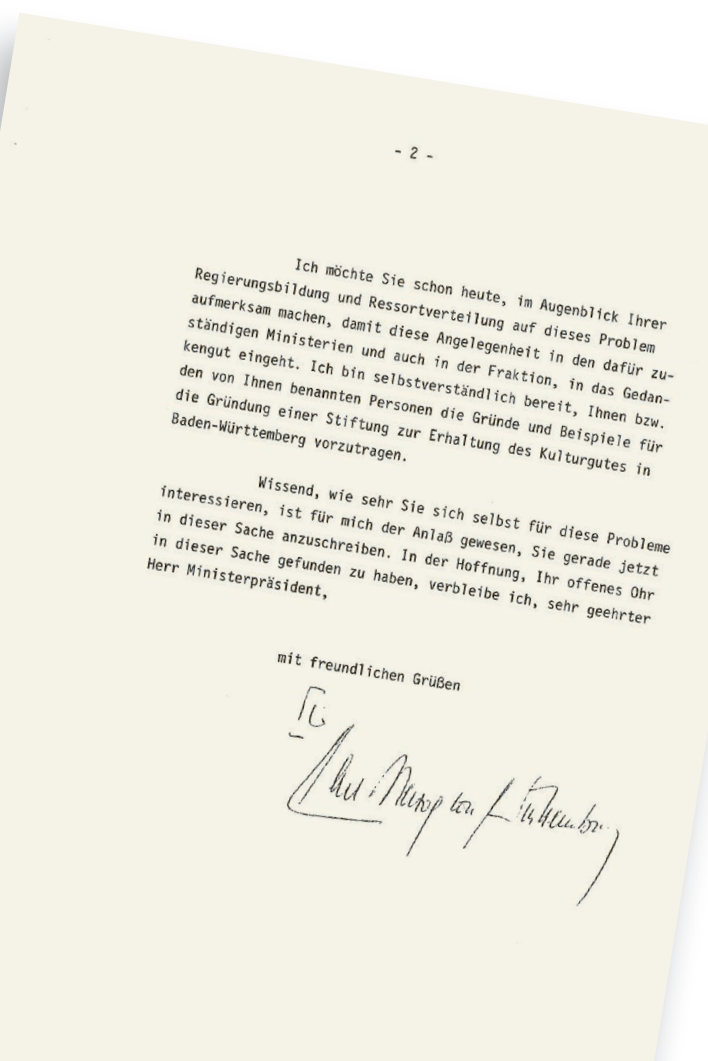 - 2 -
Ich möchte Sie schon heute, im Augenblick Ihrer
Regierungsbildung und Ressortverteilung auf dieses Problem
aufmerksam machen, damit diese Angelegenheit in den dafür zu-
ständigen Ministerien und auch in der Fraktion, in das Gedan-
kengut eingeht. Ich bin selbstverständlich bereit, Ihnen bzw.
den von Ihnen benannten Personen die Gründe und Beispiele für
die Gründung einer Stiftung zur Erhaltung des Kulturgutes in
Baden-Württemberg vorzutragen.
Wissend, wie sehr Sie sich selbst für diese Probleme
interessieren, ist für mich der Anlaß gewesen, Sie gerade jetzt
in dieser Sache anzuschreiben. In der Hoffnung, Ihr offenes Ohr
in dieser Sache gefunden zu haben, verbleibe ich, sehr geehrter
Herr Ministerpräsident,
mit freundlichen Grüßen
Herzog von